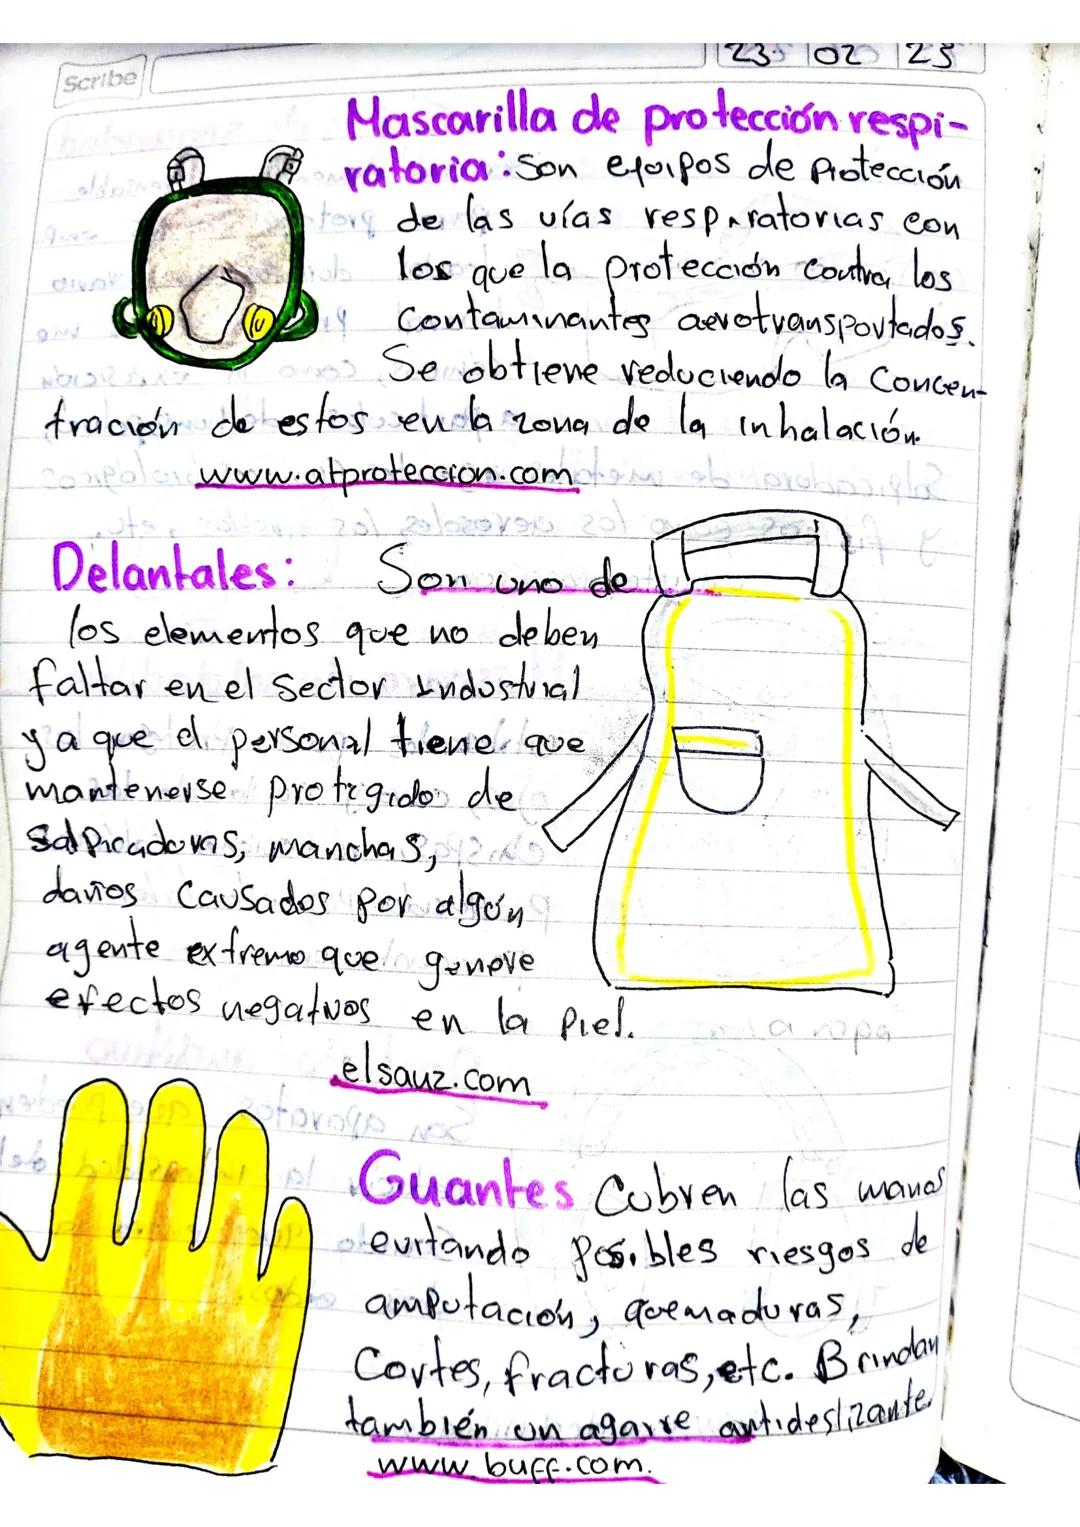 Scribe
23 02 25
Mascarilla de protección respi-
ratoria: Son equipos de Protección
de las vías respiratorias con
los que la protección contra los
Contaminantes aerotransportados.
Se obtiene reduciendo la Concen-
tración de estos en la zona de la inhalación.
www.atproteccion.com
Delantales: Son uno de
los elementos que no deben
faltar en el Sector Industrial
ya que el personal tiene que
mantenerse protegido de
Salpicaduras, manchas,
daños Causados por algún
agente extremo que genere
efectos negativos en la Piel.
elsauz.com
Guantes Cubren las manos
evitando posibles riesgos de
amputación, quemaduras,
Cortes, fracturas, etc. Brindan
también un agarre antideslizante.
www.buff.com.